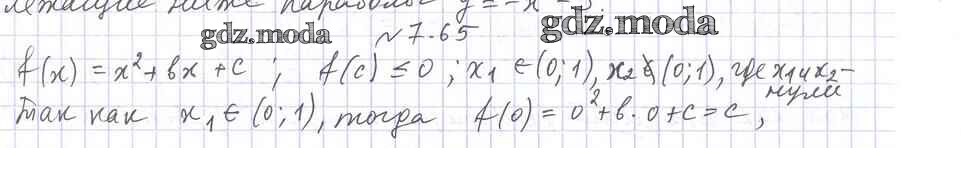 лежащие ниже параболы y = -x² - 5
gdz.moda
gdz.moda
№ 7.65
f(x) = x² + bx + c ; f(c) ≤ 0 ; x₁ ∈ (0; 1), x₂ ∉ (0; 1), где x₁ и x₂ –
нули
Так как x₁ ∈ (0; 1), тогда f(0) = 0² + b · 0 + c = c ,